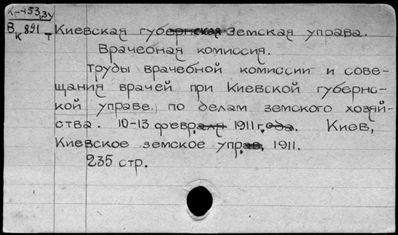 К-453,34
В 891 Киевская губернская Земская управа.
К Т
Врачебная комиссия.
Труды врачебной комиссии и сове-
щания врачей при Киевской губернс-
кой управе по делам земского хозяй-
ства. 10-13 февраля 1911 года. Киев,
Киевское земское управ, 1911.
235 стр.